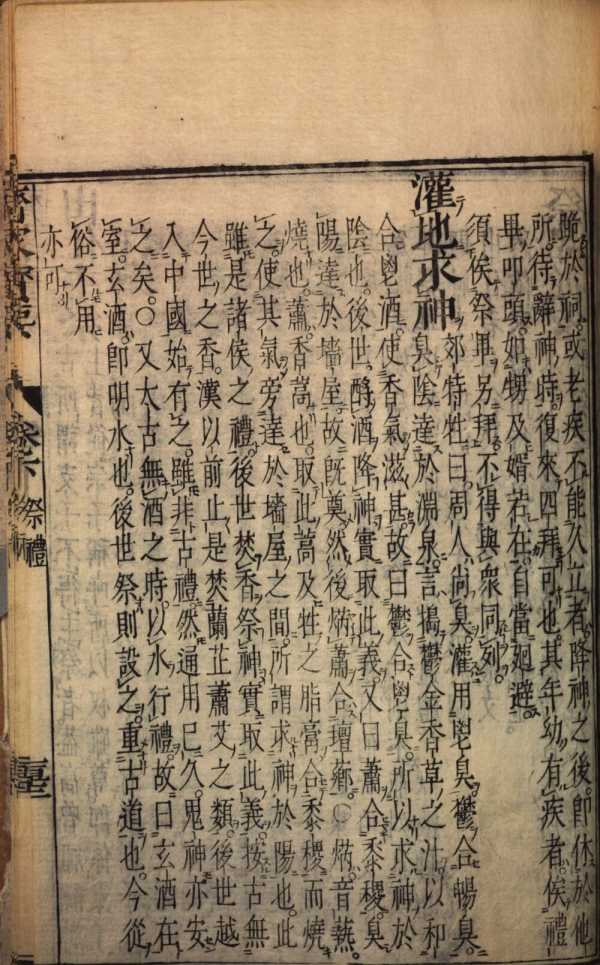 跪於祠。或老疾不能久立者。降神之後。卽休於他
所。待辭神時。復來四拜可也。其年幼有疾者。俟禮
畢叩頭。如甥及婿若在。自當廻避。
須俟祭畢另拜。不得與衆同列。
灌地求神 郊特牲曰。周人尚臭。灌用鬯臭。鬱合暢臭。
臭陰達於淵泉。言搗鬱金香草之汁。以和
合鬯酒。使香氣滋甚。故曰鬱合鬯臭。所以求神於
陰也。後世酹酒降神。實取此義。又曰。蕭合黍稷。臭
陽達於墻屋。故旣奠然後焫蕭合羶薌。○焫音爇。
燒也。蕭香蒿也。取此蒿及牲之脂膏。合黍稷而燒
之。使其氣旁達於墻屋之間。所謂求神於陽也。此
雖是諸侯之禮。後世焚香祭神。實取此義。按古無
今世之香。漢以前止是焚蘭芷蕭艾之類。後世越
入中國。始有之。雖非古禮。然通用已久。鬼神亦安
之矣。○又太古無酒之時。以水行禮。故曰玄酒在
室。玄酒卽明水也。後世祭則設之。重古道也。今從
俗不用
亦可
祭禮